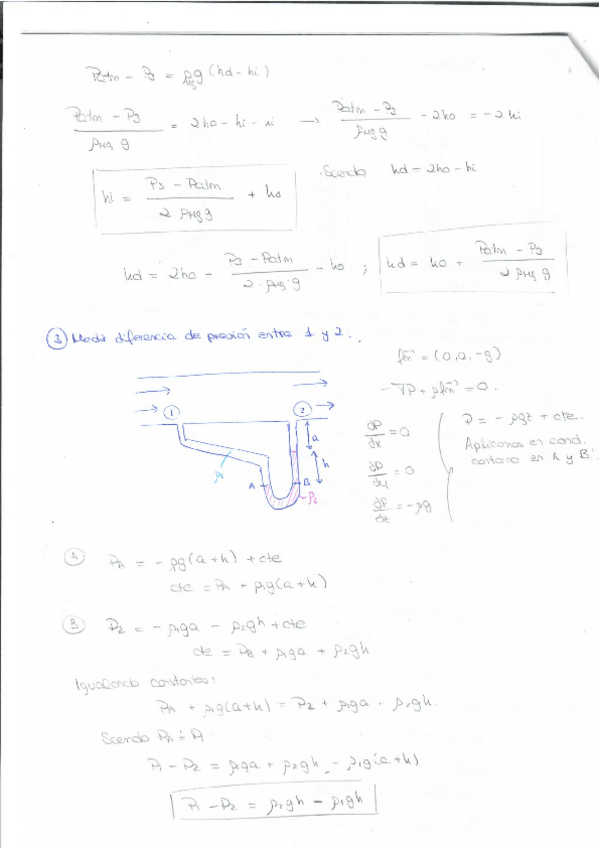 Patm - P3 = ρHg g (hd - hi)
Patm - P3 / ρHg g = 2h0 - hi - hi → Patm - P3 / ρHg g - 2h0 = -2hi
hi = P3 - Patm / 2 ρHg g + h0
Siendo hd = 2h0 - hi
hd = 2h0 - P3 - Patm / 2·ρHg g - h0 ; hd = h0 + Patm - P3 / 2 ρHg g
③ Medir diferencia de presión entre 1 y 2.
fm = (0,0,-g)
-∇P + ρfm = 0.
∂P/∂x = 0
∂P/∂y = 0
∂P/∂z = -ρg
P = -ρgz + cte.
Aplicamos en cond.
contorno en A y B.
① ②
a
h
A B
ρ1
ρ2
Ⓐ PA = -ρg(a+h) + cte
cte = PA - ρ1g(a+h)
Ⓑ P2 = -ρ1ga - ρ2gh + cte
cte = PB + ρ1ga + ρ2gh
Igualando constantes:
PA + ρ1g(a+h) = P2 + ρ1ga + ρ2gh.
Siendo PA = P1
P1 - P2 = ρ1ga + ρ2gh - ρ1g(a+h)
P1 - P2 = ρ2gh - ρ1gh